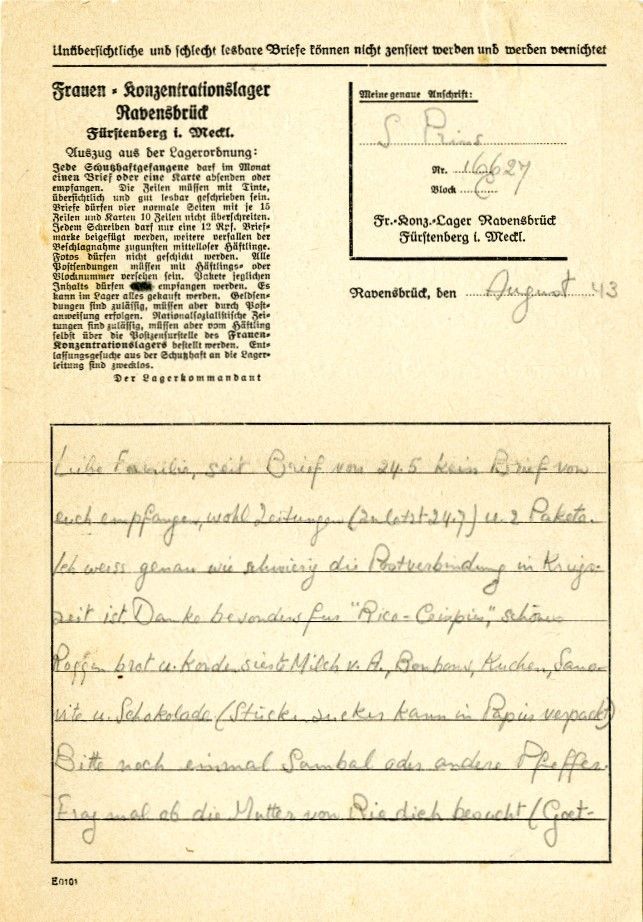 Unübersichtliche und schlecht lesbare Briefe können nicht zensiert werden und werden vernichtet
Frauen-Konzentrationslager
Ravensbrück
Fürstenberg i. Meckl.
Auszug aus der Lagerordnung:
Jede Schutzhaftgefangene darf im Monat
einen Brief oder eine Karte absenden oder
empfangen. Die Zeilen müssen mit Tinte,
übersichtlich und gut lesbar geschrieben sein.
Briefe dürfen vier normale Seiten mit je 15
Zeilen und Karten 10 Zeilen nicht überschreiten.
Jedem Schreiben darf nur eine 12 Rpf. Brief-
marke beigefügt werden, weitere verfallen der
Beschlagnahme zugunsten mittelloser Häftlinge.
Fotos dürfen nicht geschickt werden. Alle
Postsendungen müssen mit Häftlings- oder
Blocknummer versehen sein. Pakete jeglichen
Inhalts dürfen empfangen werden. Es
kann im Lager alles gekauft werden. Geldsen-
dungen sind zulässig, müssen aber durch Post-
anweisung erfolgen. Nationalsozialistische Zei-
tungen sind zulässig, müssen aber vom Häftling
selbst über die Postzensurstelle des Frauen-
Konzentrationslagers bestellt werden. Ent-
lassungsgesuche aus der Schutzhaft an die Lager-
leitung sind zwecklos.
Der Lagerkommandant
Meine genaue Anschrift:
S Prins
Nr. 16627
Block
Fr.-Konz.-Lager Ravensbrück
Fürstenberg i. Meckl.
Ravensbrück, den August 43
Liebe Familie, seit Brief von 24.5 kein Brief von
euch empfangen, wohl Zeitungen (zuletzt 24.7) u. 2 Pakete.
Ich weiss genau wie schwierig die Postverbindung in Kriegs-
zeit ist. Danke besonders für schönes
Roggenbrot u. Milch v. A., Bonbons, Kuchen, Sano-
vite u. Schokolade (Stücke zucker kann in Papier verpackt)
Bitte noch einmal Sambal oder andere Pfeffer.
Frag mal ob die Mutter von Rie dich besucht (Goet-
E0101